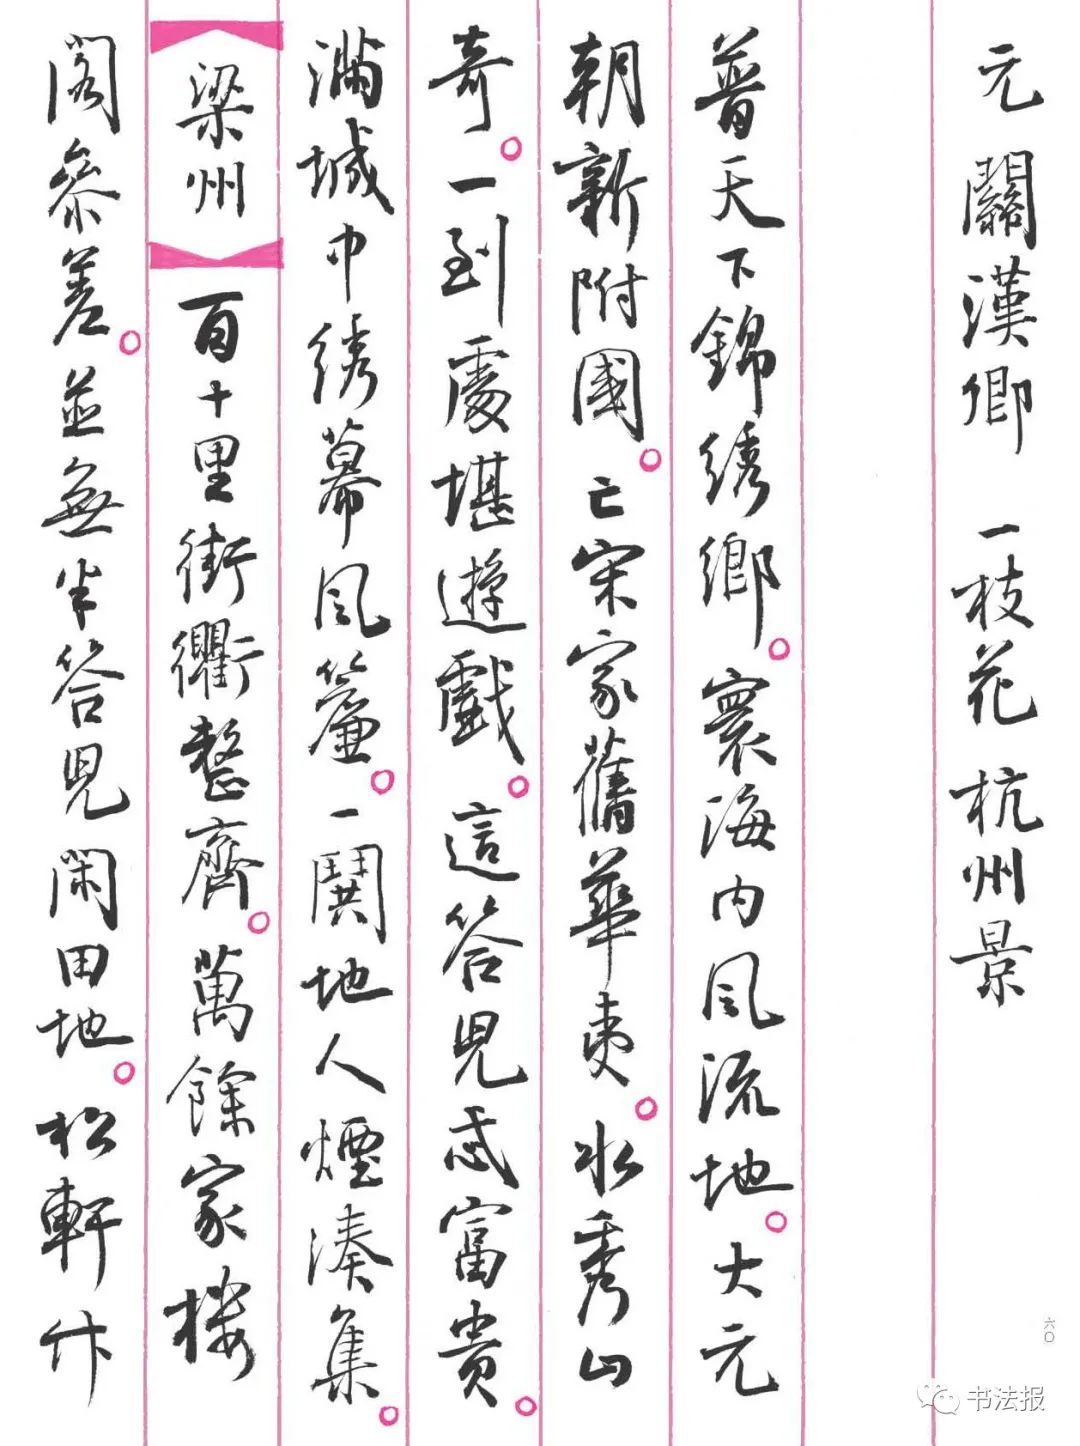 元 關漢卿 一枝花 杭州景
普天下錦綉鄉。寰海内風流地。大元
朝新附國。亡宋家舊華夷。水秀山
奇。一到處堪遊戲。這答兒忒富貴。
滿城中綉幕風簾。一鬨地人煙湊集。
【梁州】百十里街衢整齊。萬餘家樓
閣參差。並無半答兒閑田地。松軒竹
六〇
书法报